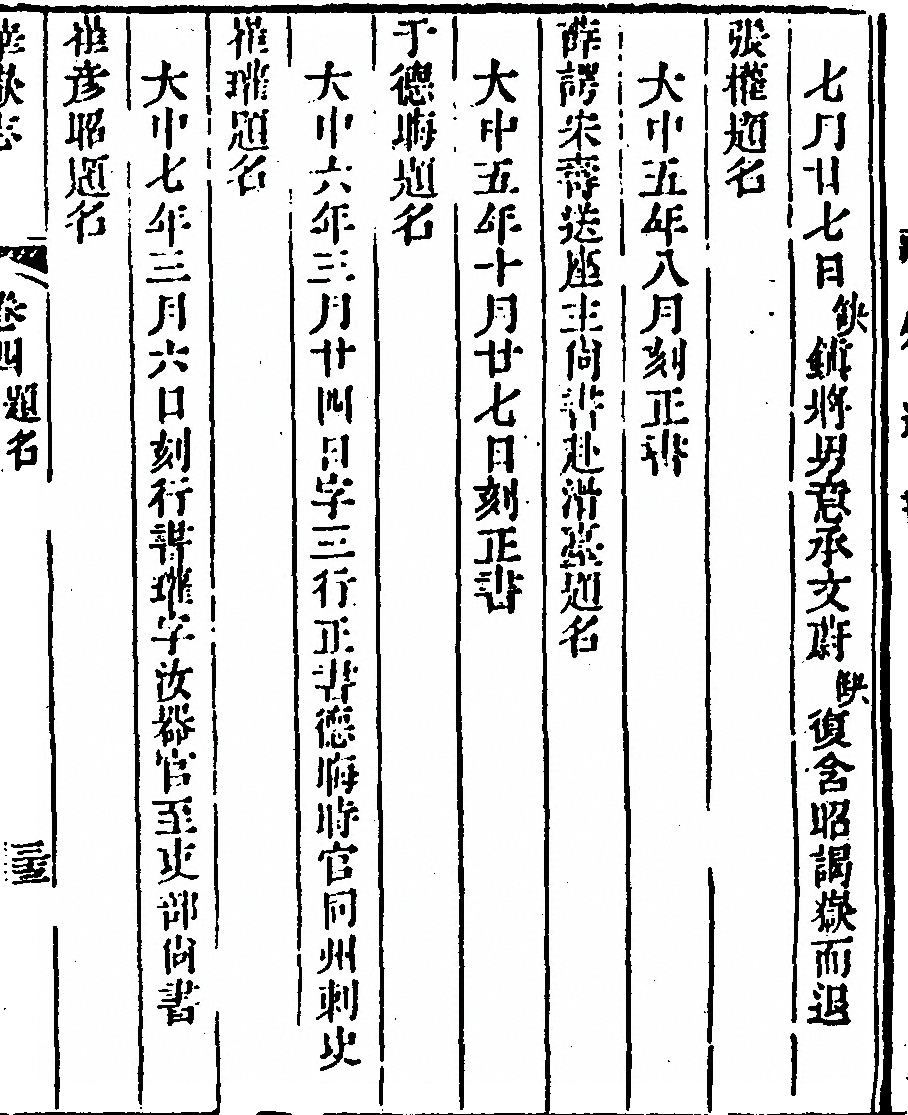 七月廿七日缺鎮將男慤承文蔚缺復含昭謁嶽而退
張權題名
大中五年八月刻正書
薛諤朱壽送座主尚書赴滑臺題名
大中五年十月廿七日刻正書
于德晦題名
大中六年三月廿四日字三行正書德晦時官同州刺史
崔瓘題名
大中七年三月六日刻行書瓘字汝器官至吏部尚書
崔彥昭題名
卷四題名